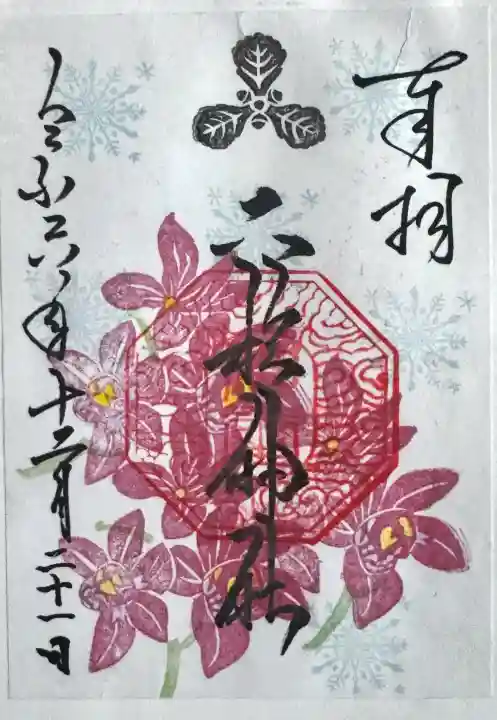 奉拝
神社
令和六年十二月二十一日